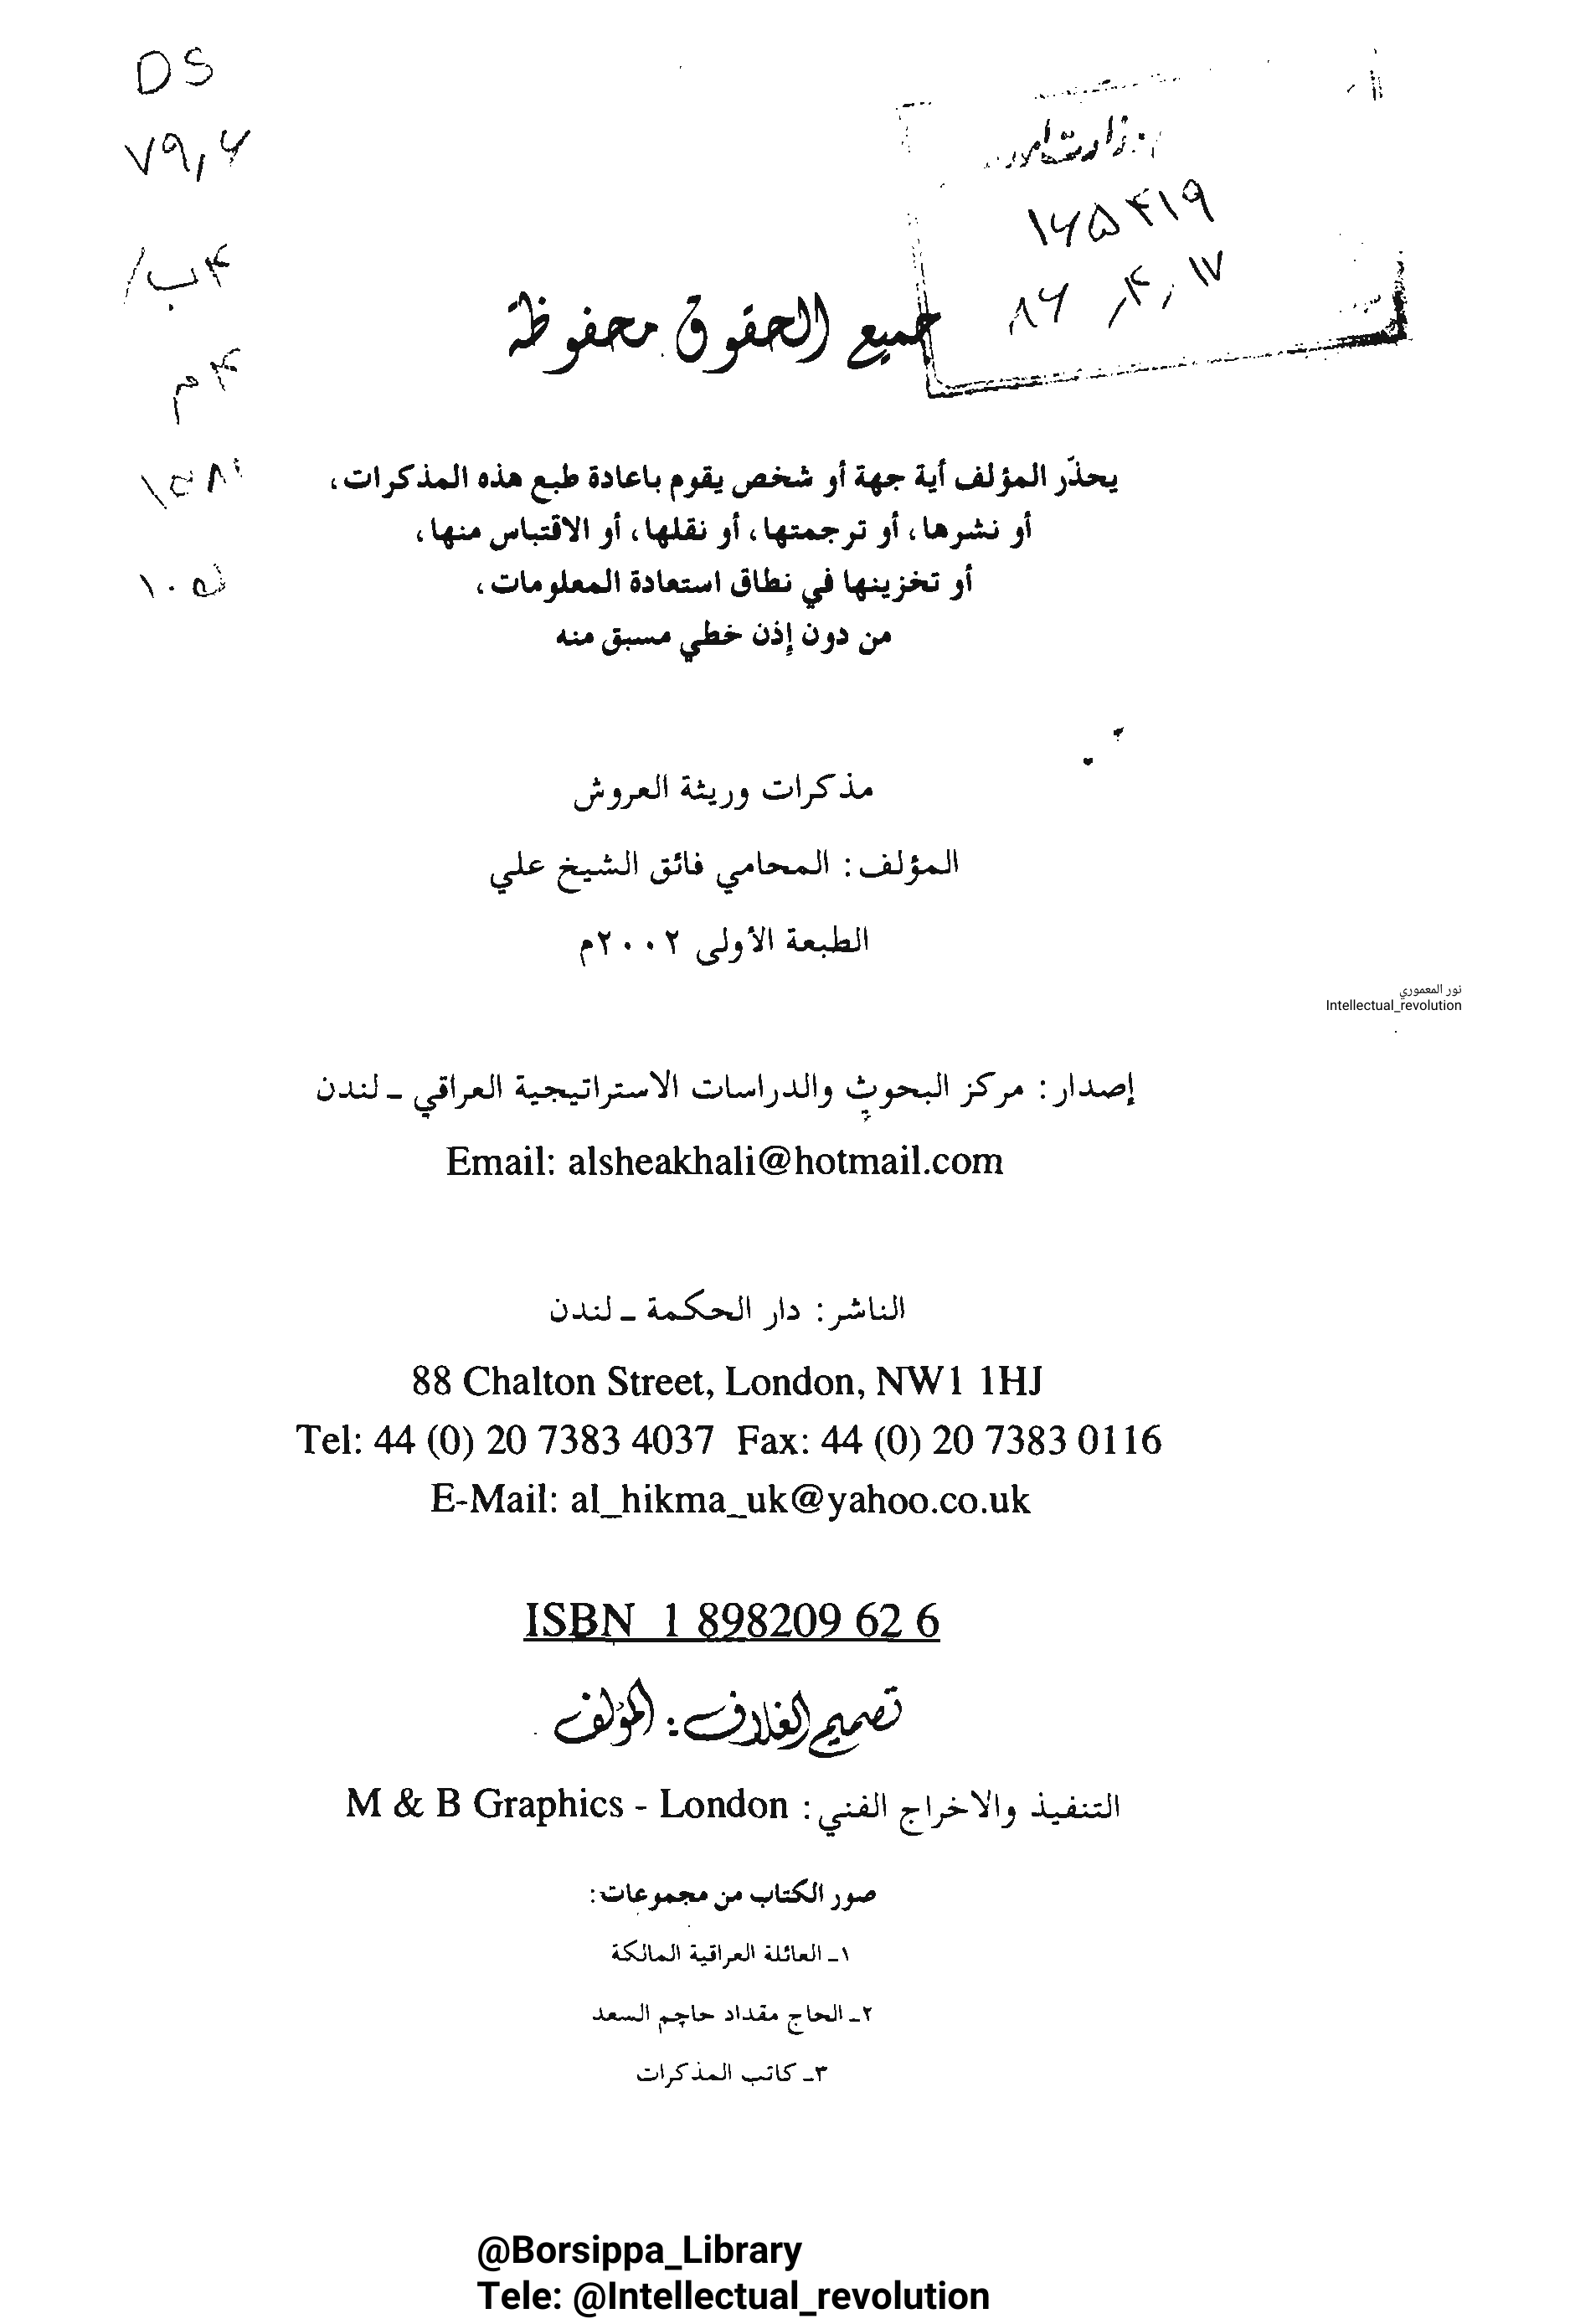 DS
۷۹,۶
۴ب/
۴م
۱۶۵۴۱۹
۸۶ ,۴, ۱۷
جميع الحقوق محفوظة
يحذّر المؤلف أية جهة أو شخص يقوم باعادة طبع هذه المذكرات،
أو نشرها، أو ترجمتها، أو نقلها، أو الاقتباس منها،
أو تخزينها في نطاق استعادة المعلومات،
من دون إذن خطي مسبق منه
مذكرات وريثة العروش
المؤلف: المحامي فائق الشيخ علي
الطبعة الأولى ٢٠٠٢م
نور المعموري
Intellectual_revolution
إصدار: مركز البحوث والدراسات الاستراتيجية العراقي ـ لندن
Email: alsheakhali@hotmail.com
الناشر: دار الحكمة ـ لندن
88 Chalton Street, London, NW1 1HJ
Tel: 44 (0) 20 7383 4037 Fax: 44 (0) 20 7383 0116
E-Mail: al_hikma_uk@yahoo.co.uk
ISBN 1 898209 62 6
تصميم الغلاف: المؤلف
التنفيذ والاخراج الفني: M & B Graphics - London
صور الكتاب من مجموعات:
١ـ العائلة العراقية المالكة
٢ـ الحاج مقداد حاچم السعد
٣ـ كاتب المذكرات
@Borsippa_Library
Tele: @Intellectual_revolution